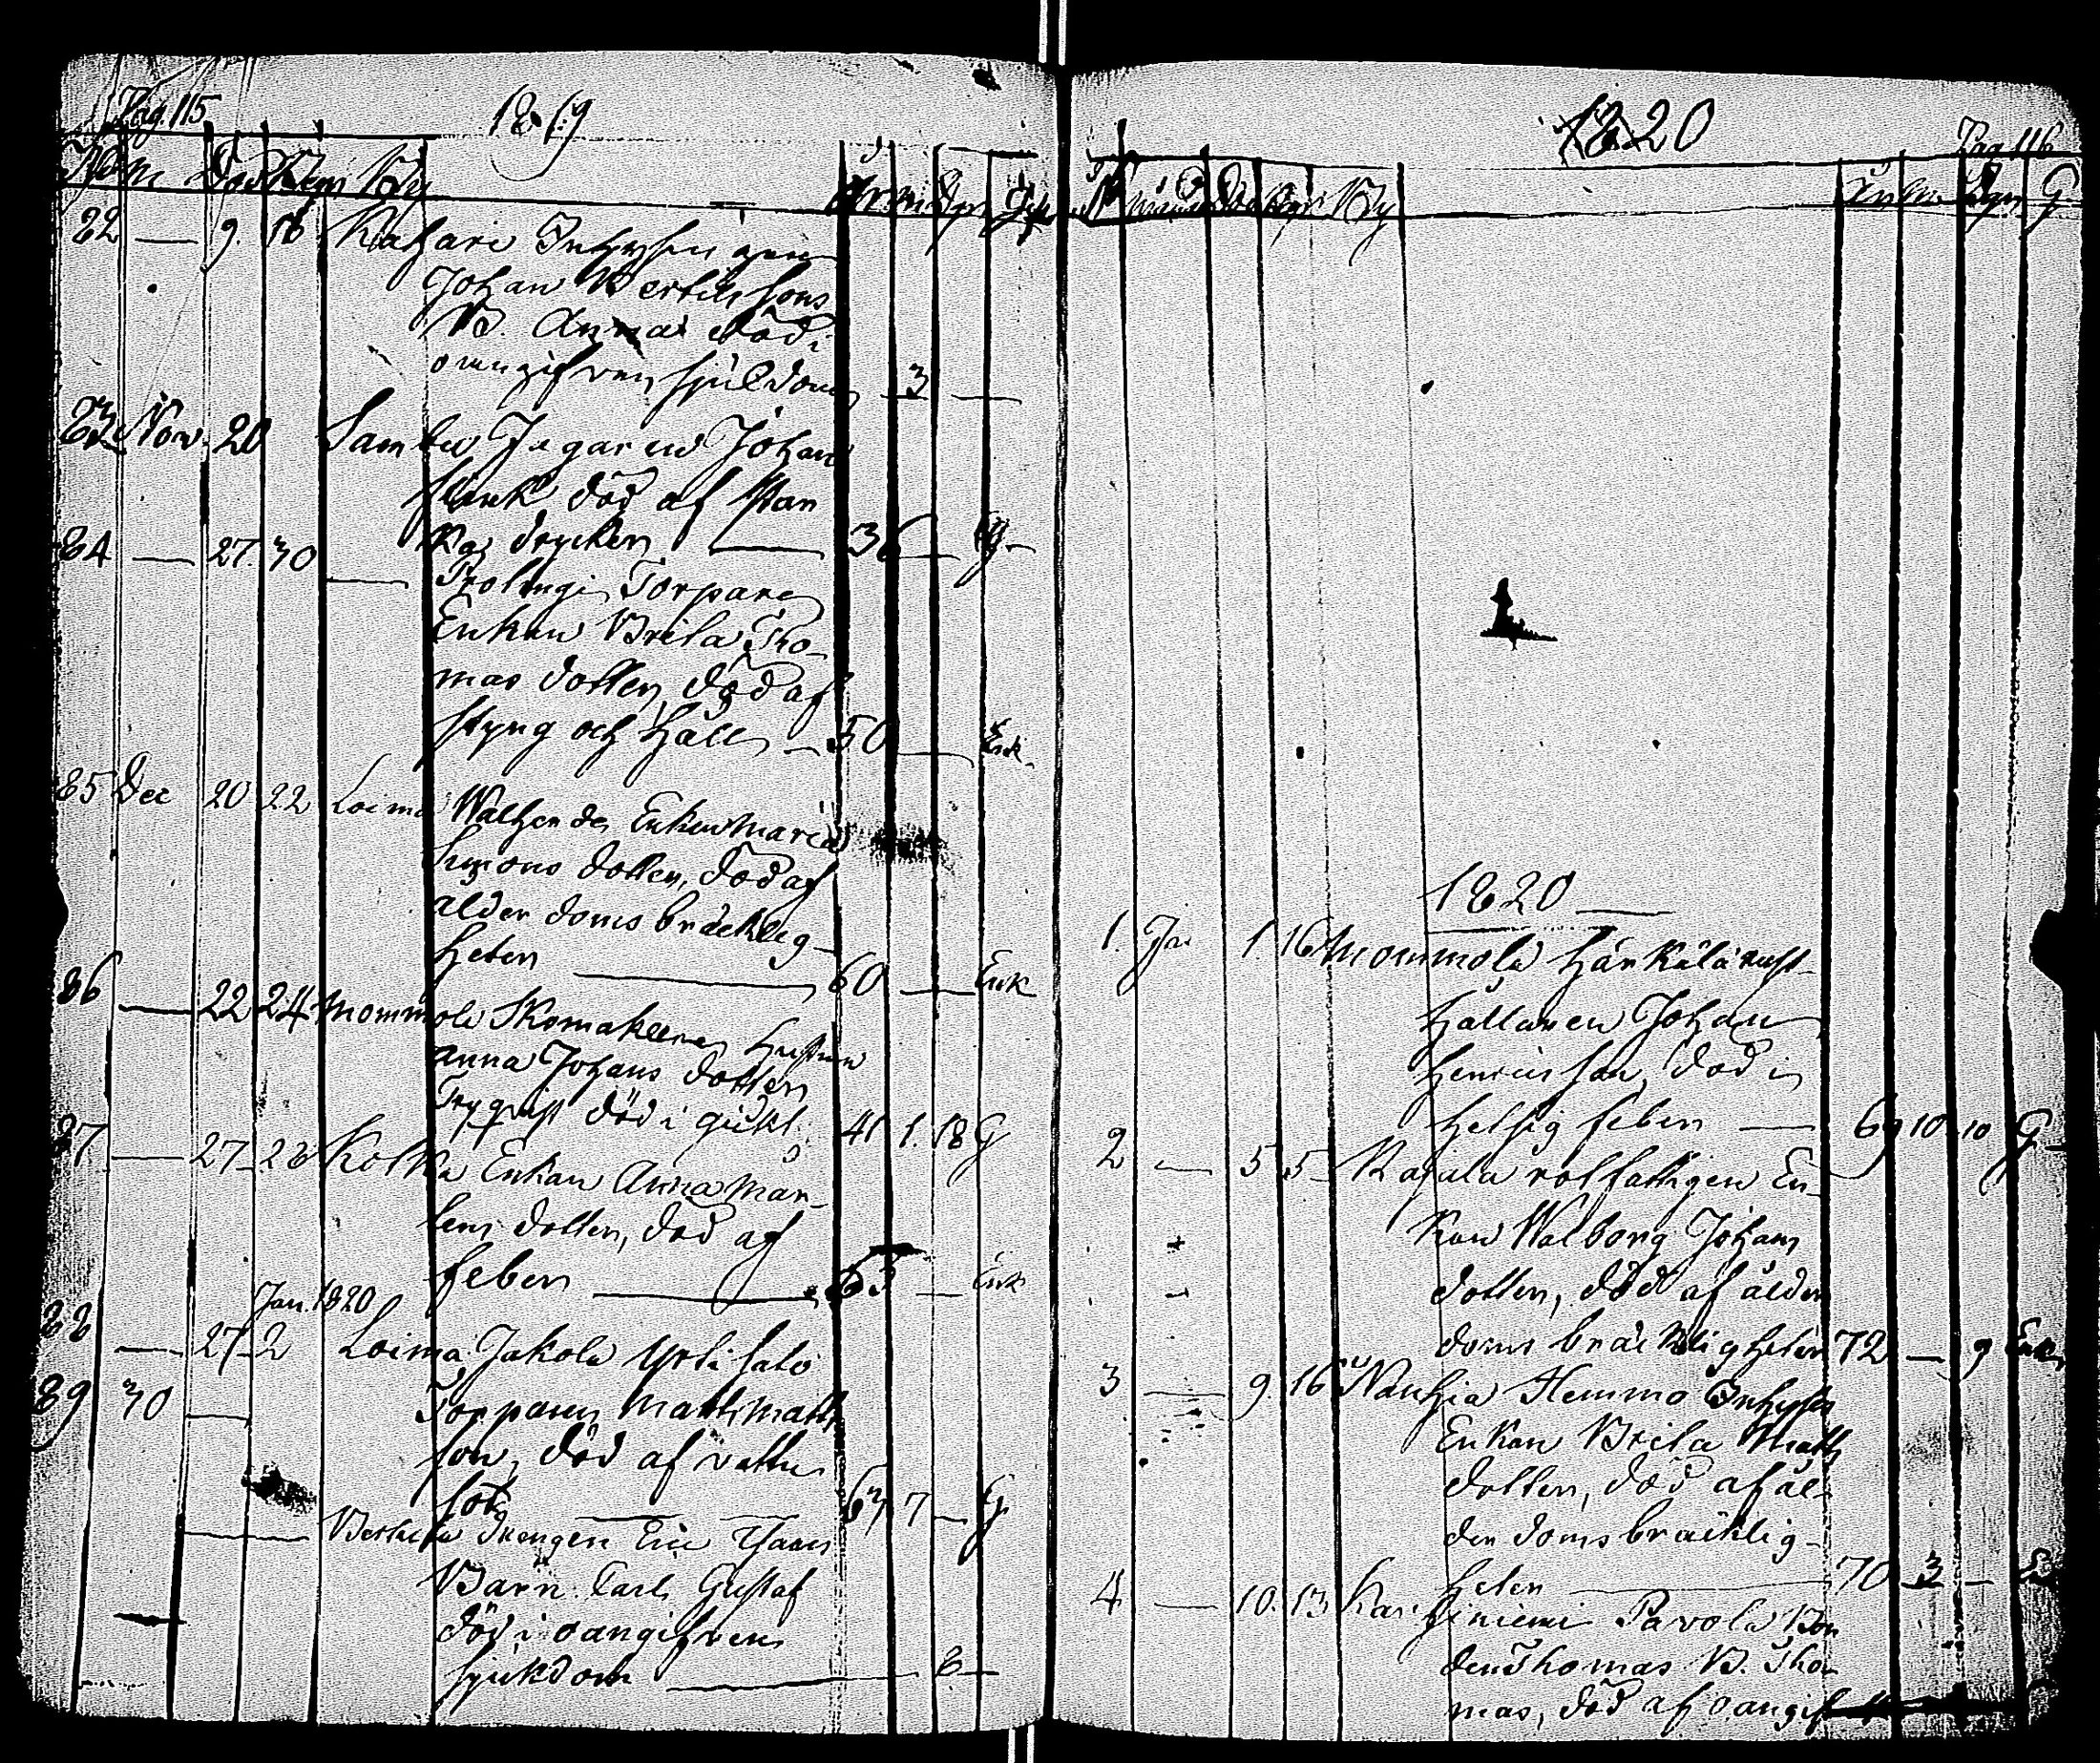 Pag. 115
1819
By
82 — 9. 16
Johan Bertilssons
B. Anna död i
3 —
83 Nov. 20 Jägaren Johan
död af star
ka drycker — 36 — G —
84 — 27. 30 — Torpare
Enkan Brita Tho-
mas dotter, död af
styng och håll — 50 — Enk
85 Dec 20 22 Loima Enkan Maria
Simons dotter, död af
ålder doms bräcklig-
heten — 60 — Enk
86 — 22 24 Mommola Skomakaren hustru
Anna Johans dotter
död i gickt. 41 1. 18 G
87 — 27. 28 Kolkka Enkan Anna Mår-
tens dotter, död af
feber — 63 — Enk
Jan. 1820
88 — 27 2 Loima Jakola Ylisalo
Torparen Matts Matts
son, död af vattu
sot 63 7 — G
89 30 — — Drengen Eric
Barn Carl Gustaf
död i oangifven
sjukdom — 8 —
1820
Pag 116
By
1820 —
1. Jan 1. 16 Mommola Härkälä rust
hållaren Johan
Henricsson, död i
hetsig feber — 69 10 10 G —
2 — 5 5 Karjula rotfattigen En-
kan Walborg Johans
dotter, död af ålder
doms bräckligheten 72 — 9 Enk
3 — 9 16 Nauhia Hemmo Inhyses
Enkan Brita Matts
dotter, död af ål-
der doms bräcklig-
heten — 70 3 — E
4 — 10. 13 Karhiniemi Pavola Bon
den Thomas B. Tho
mas, död af oangif